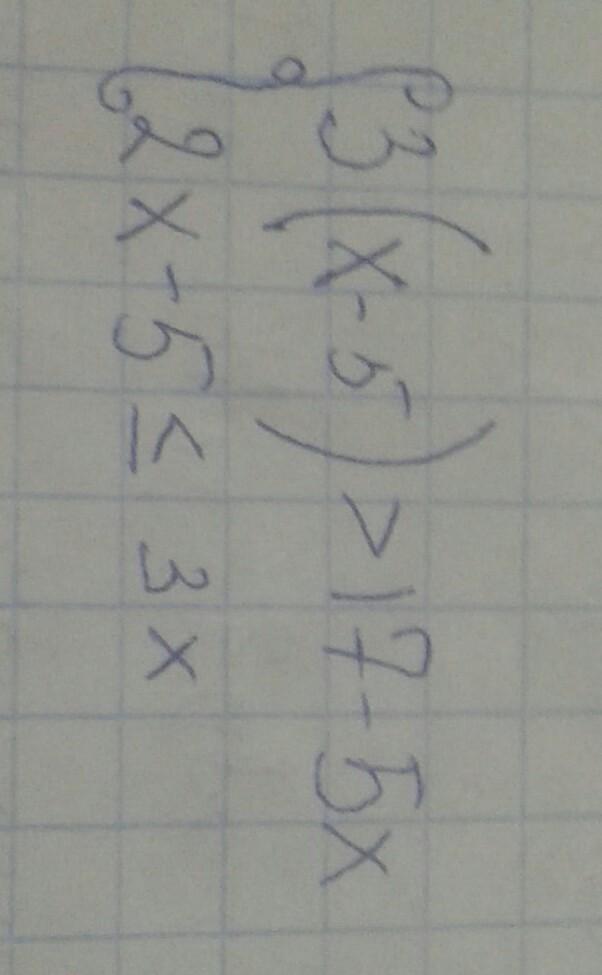 3(x-5)>17-5x
2x-5≤3x